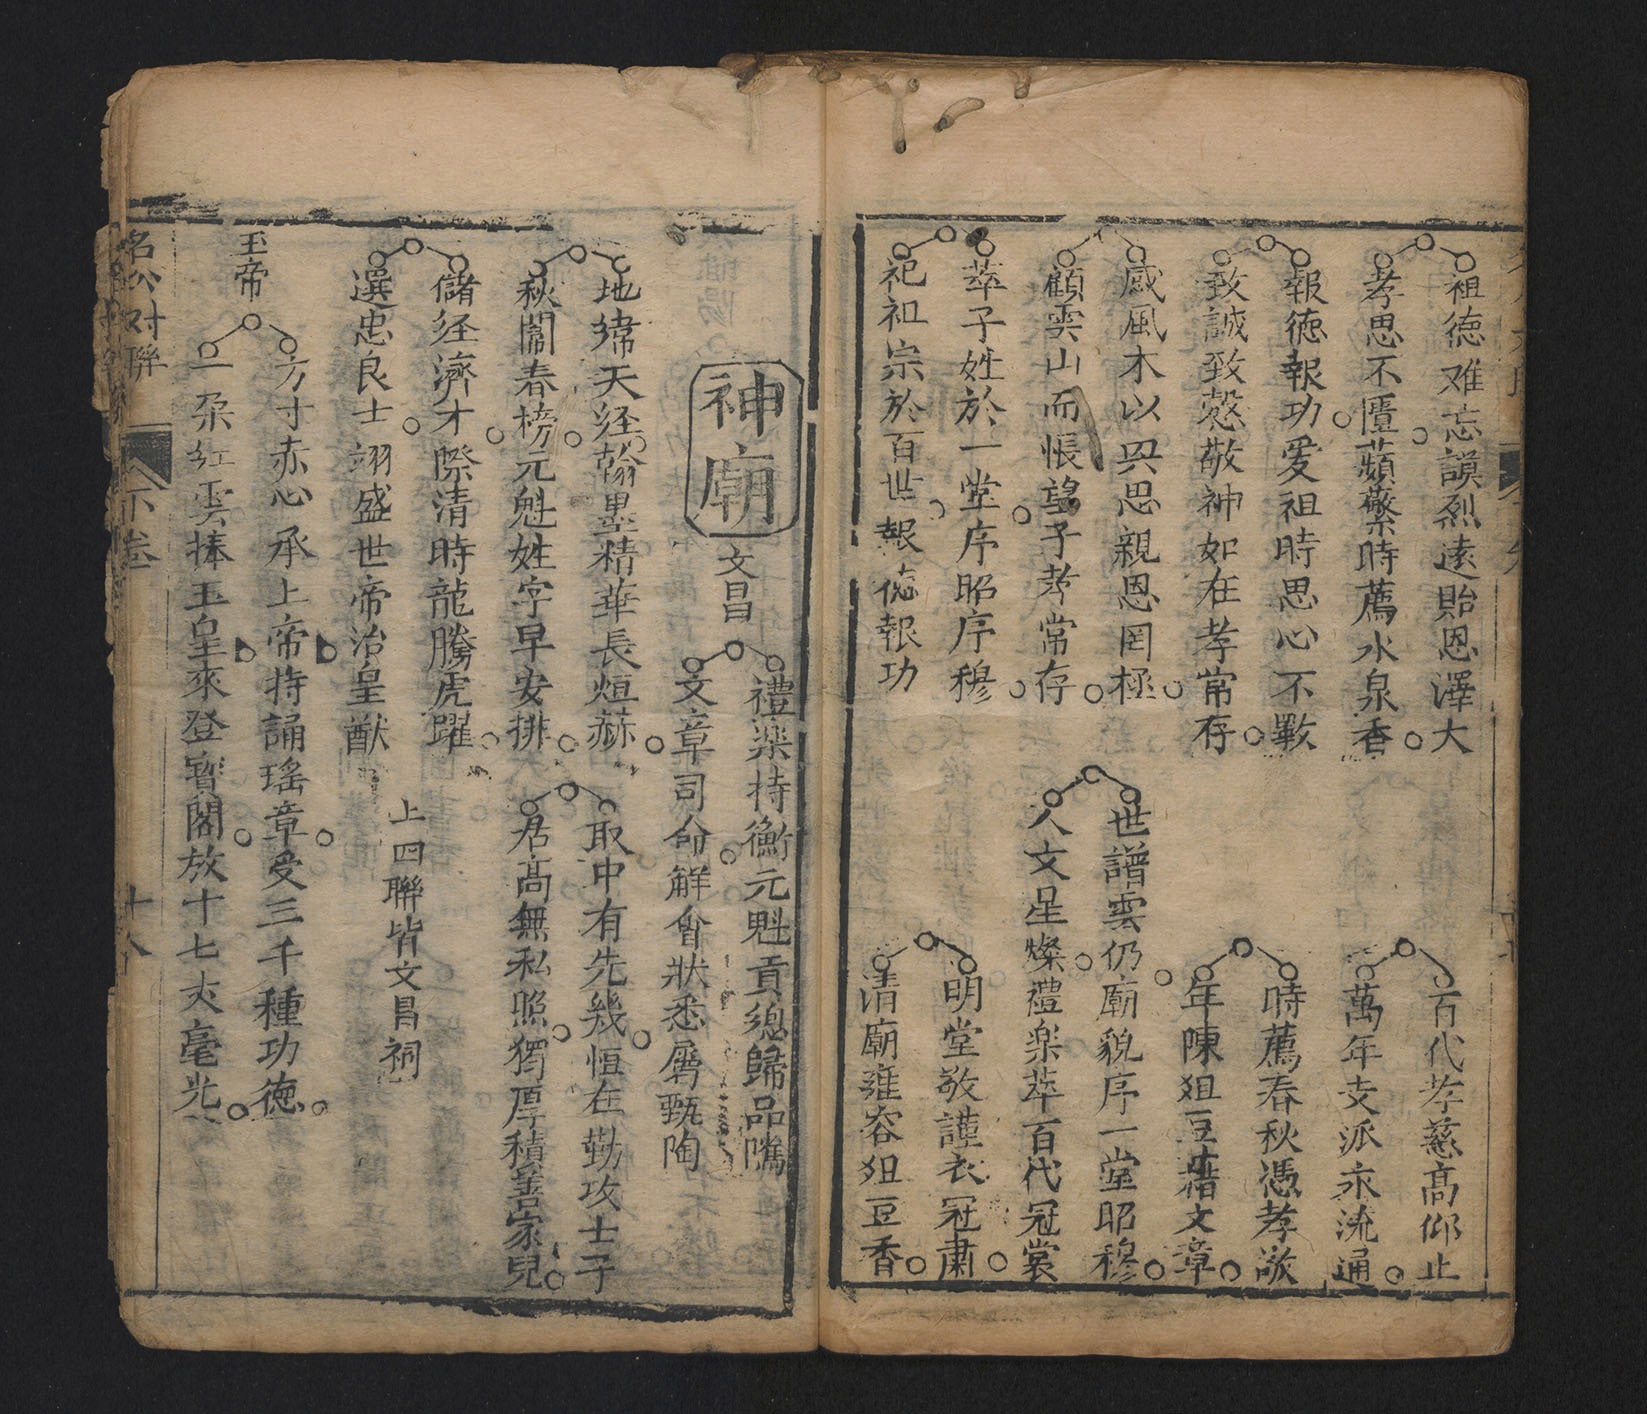 祖徳难忘謨烈遠貽恩澤大
孝思不匱蘋蘩時薦水泉香
百代孝慈高仰止
萬年支派永流通
報徳報功愛祖時思心不斁
致誠致慤敬神如在孝常存
時薦春秋憑孝敬
年陳俎豆藉文章
感風木以興思親恩罔極
顧雲山而悵望子孝常存
世譜雲仍廟貌序一堂昭穆
人文星燦禮楽萃百代冠裳
萃子姓於一堂序昭序穆
祀祖宗於百世報徳報功
明堂敬謹衣冠肅
清廟雍容俎豆香
神廟
文昌
禮楽持衡元魁貢緫歸品隲
文章司命解會狀悉屬甄陶
地緯天经翰墨精華長烜赫
秋闈春榜元魁姓字早安排
取中有先幾恒在勤攻士子
居高無私照獨厚積善家兒
儲经濟才際清時龍騰虎躍
選忠良士翊盛世帝治皇猷
上四聯皆文昌祠
玉帝
方寸赤心承上帝持誦瑤章受三千種功徳
一朶紅雲捧玉皇來登寳閣放十七丈毫光
名公対聯
下巻
十八